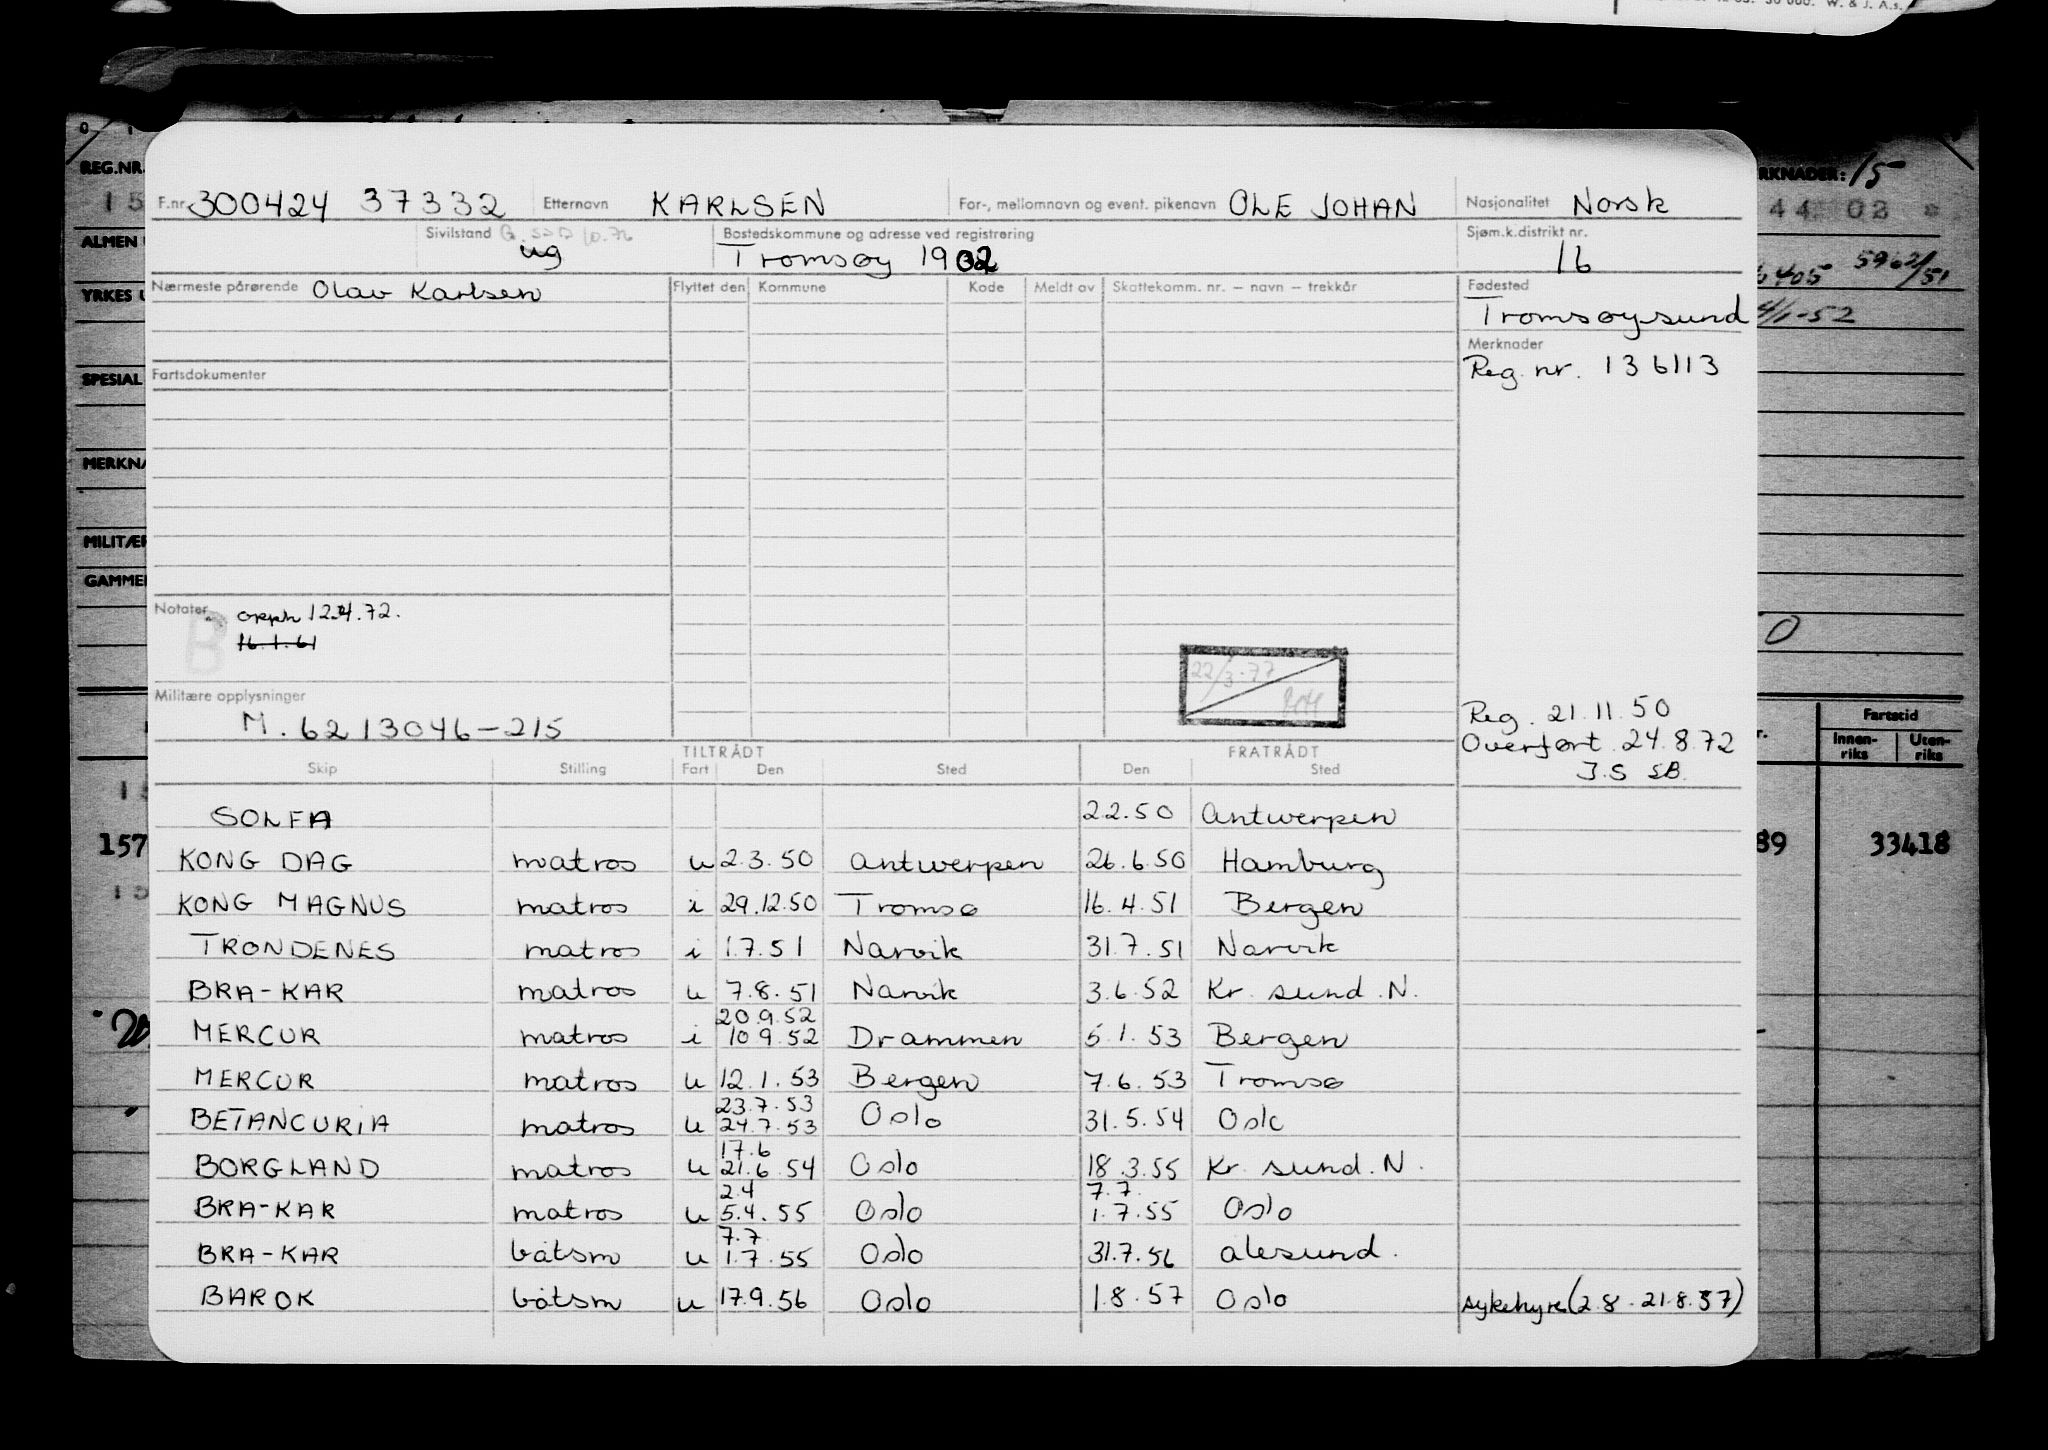 30 000. W. & J. A.s.
REG.NR.
RKNADER: 15
15
44 02
ALMEN
YRKES
SPESIAL
MERKNA
MILITÆR
GAMMEL
405 5962/51
4/1-52
0
Fartstid
Innenriks Utenriks
157
89 33418
F.nr. 300424 37332 Etternavn KARLSEN For-, mellomnavn og event. pikenavn OLE JOHAN Nasjonalitet Norsk
Sivilstand ug Bostedskommune og adresse ved registrering Tromsøy 1902 Sjøm.k.distrikt nr. 16
Nærmeste pårørende Olav Karlsen Flyttet den Kommune Kode Meldt av Skattekomm. nr. – navn – trekkår Fødested
Tromsøysund
Merknader
Reg. nr. 136113
Fartsdokumenter
Notater opph 12.4.72.
B
16.1.61
22/3-77
Militære opplysninger
M. 6213046-215
Reg. 21.11.50
Overført 24.8.72
J.S SB.
TILTRÅDT FRATRÅDT
Skip Stilling Fart Den Sted Den Sted
SOLFA 2.2.50 Antwerpen
KONG DAG matros u 2.3.50 Antwerpen 26.6.50 Hamburg
KONG MAGNUS matros i 29.12.50 Tromsø 16.4.51 Bergen
TRONDENES matros i 1.7.51 Narvik 31.7.51 Narvik
BRA-KAR matros u 7.8.51 Narvik 3.6.52 Kr. sund. N.
20.9.52
MERCUR matros i 10 9.52 Drammen 5.1.53 Bergen
MERCUR matros u 12.1.53 Bergen 7.6.53 Tromsø
23.7.53
BETANCURIA matros u 24.7.53 Oslo 31.5.54 Oslo
17.6
BORGLAND matros u 21.6.54 Oslo 18.3.55 Kr. sund. N.
2.4 7.7.
BRA-KAR matros u 5.4.55 Oslo 1.7.55 Oslo
7.7
BRA-KAR båtsm u 1.7.55 Oslo 31.7.56 Ålesund.
BAROK båtsm u 17.9.56 Oslo 1.8.57 Oslo sykehyre (2.8-21.8.57)